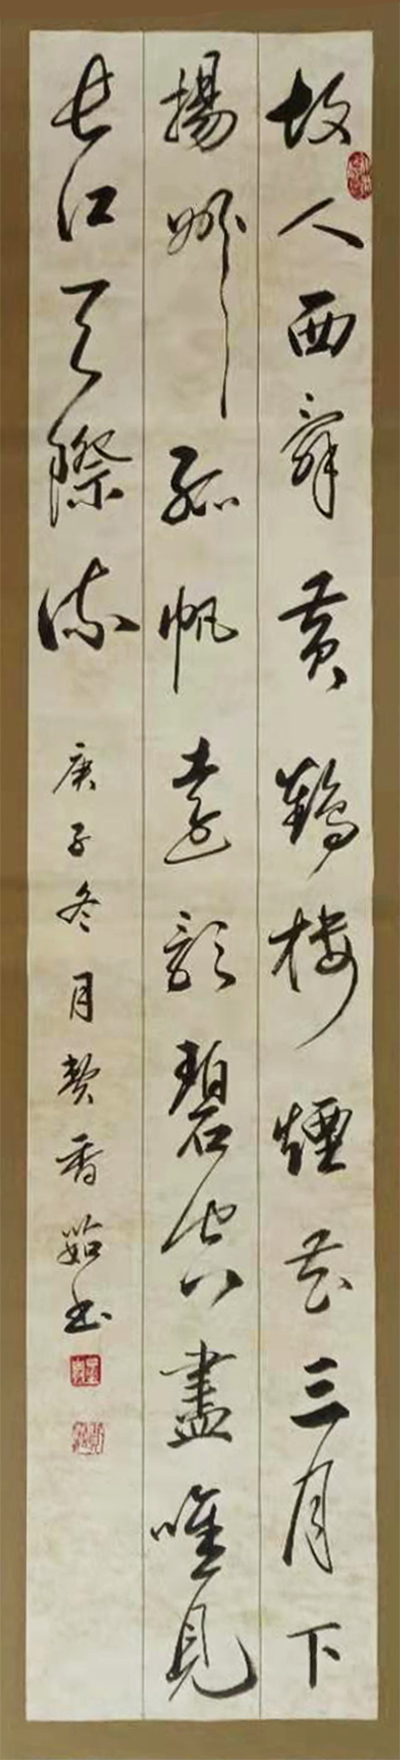 故人西辭黃鶴樓煙花三月下
揚州孤帆遠影碧空盡唯見
長江天際流
庚子冬月樊香茹書